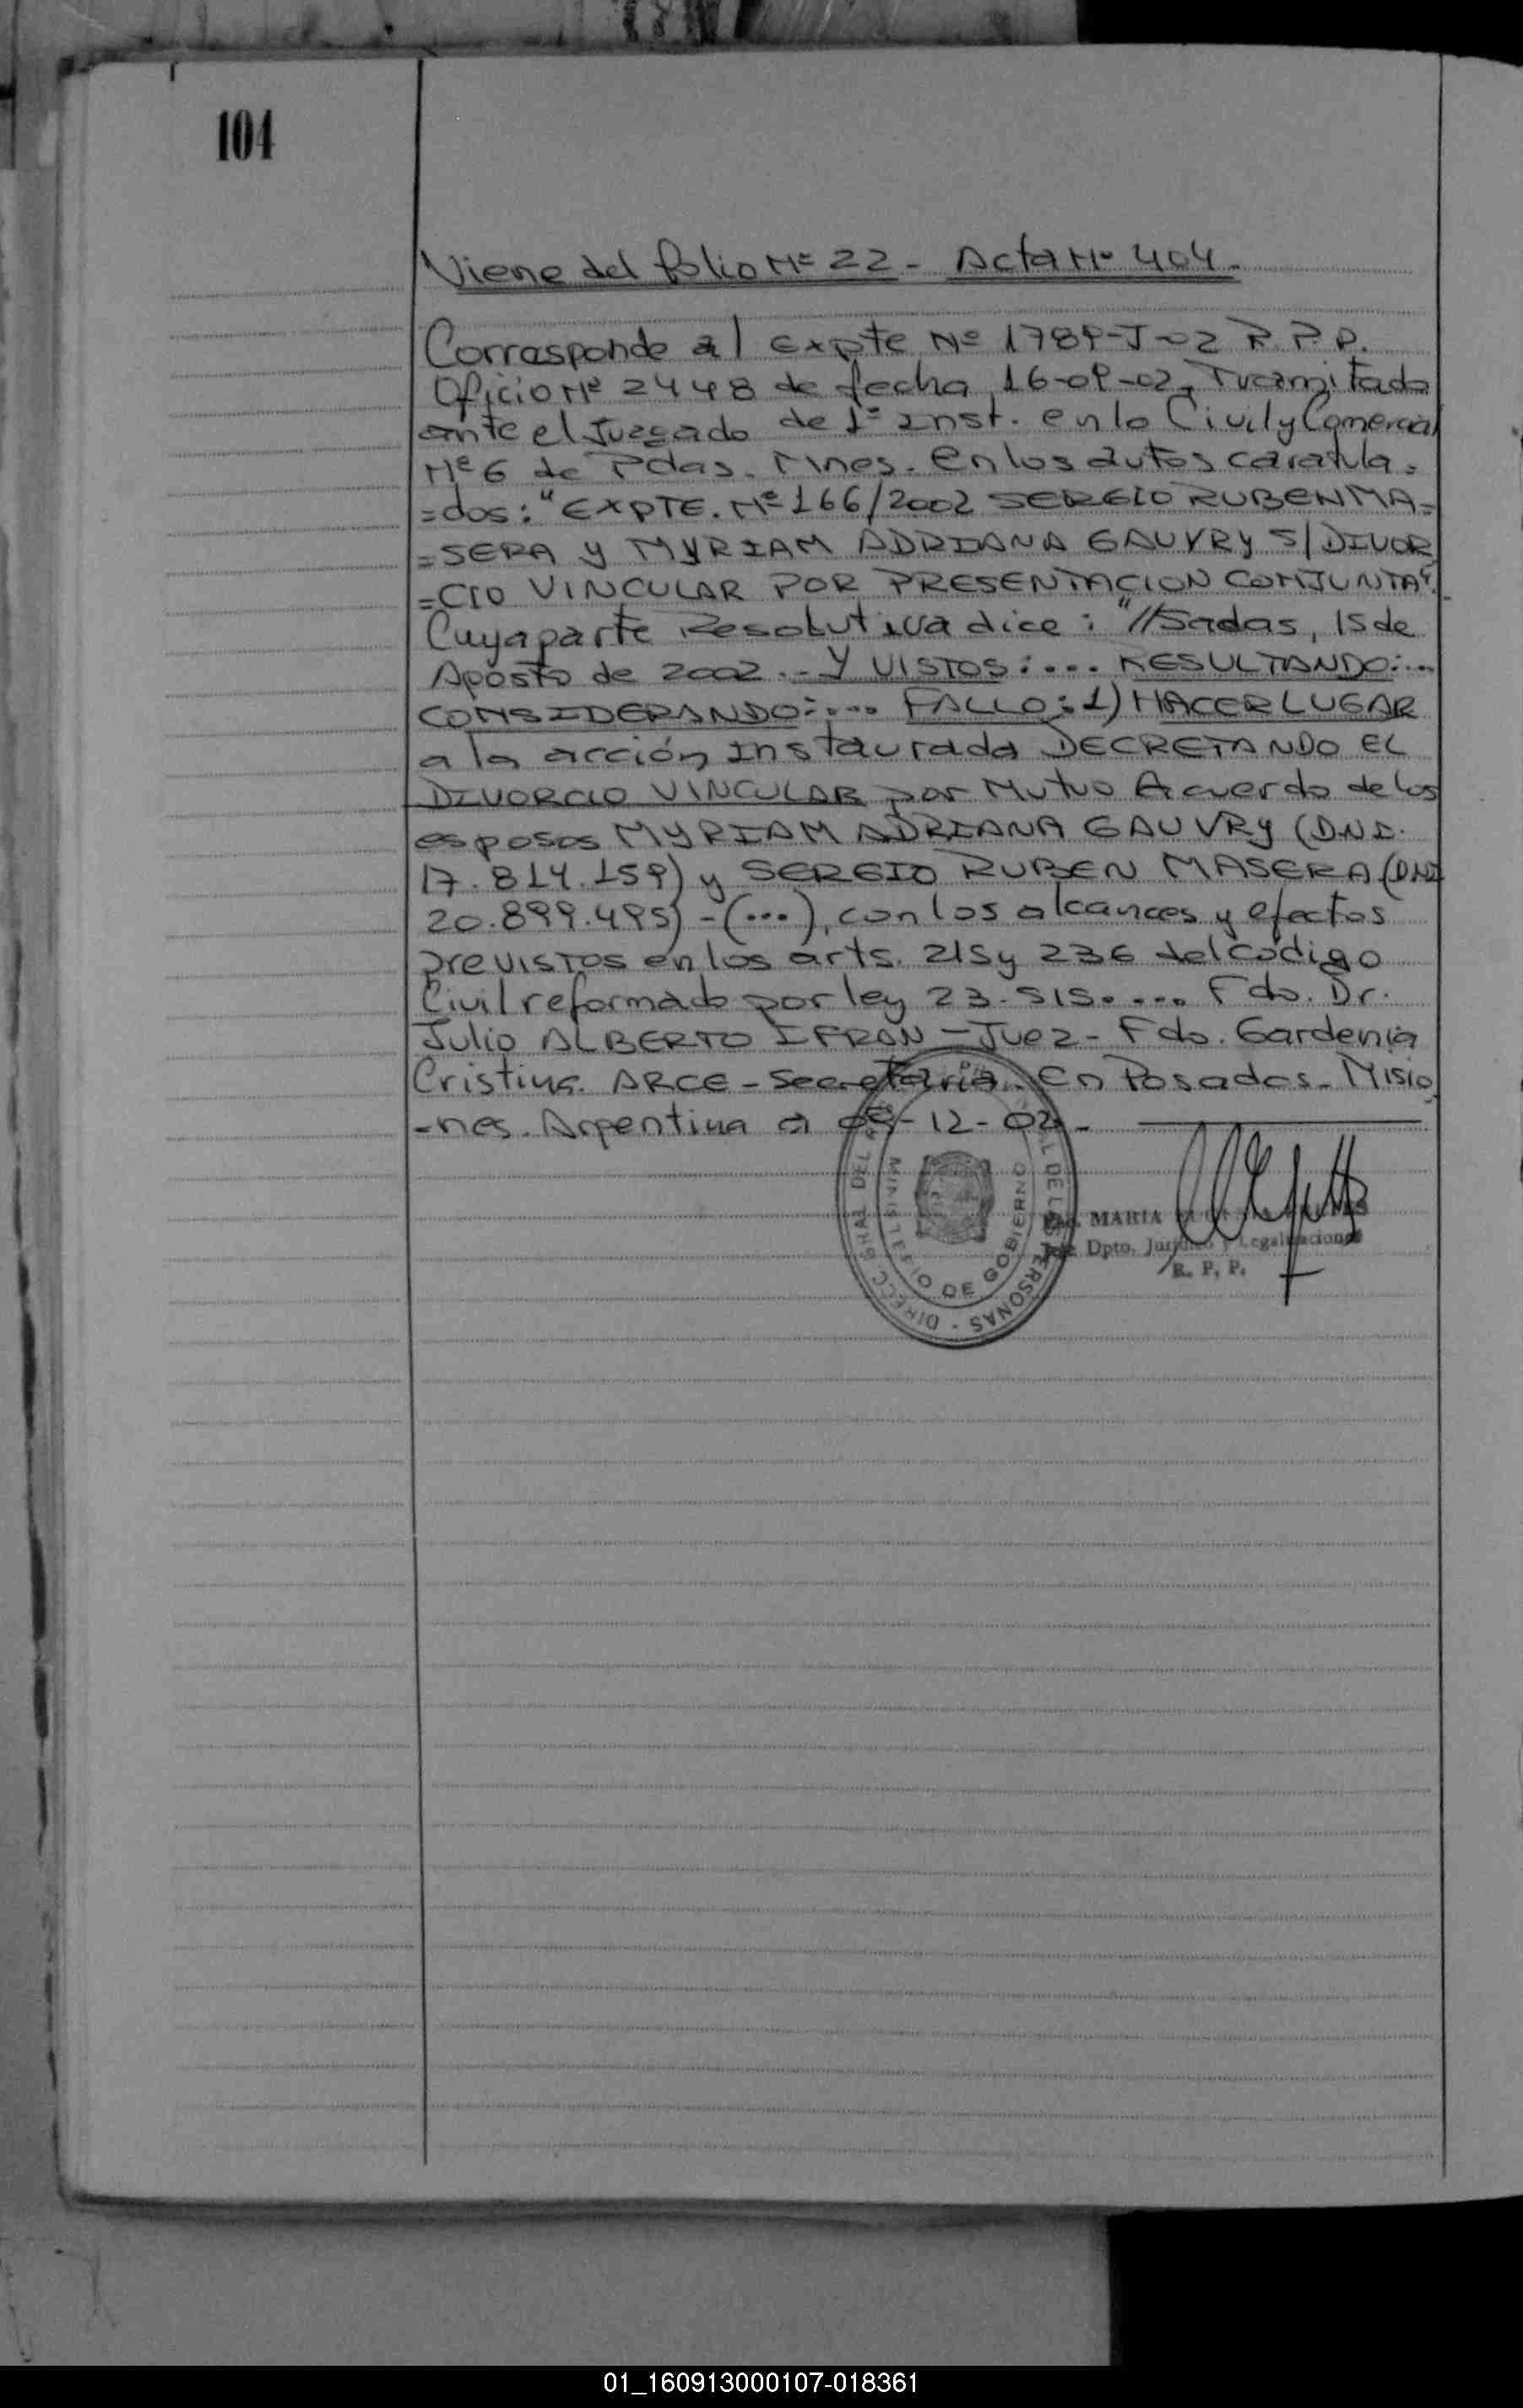 104
Viene del folio Nº 22 - Acta Nº 404.
Corresponde al Expte Nº 1789-J-02 R.P.P.
Oficio Nº 2448 de fecha 16-09-02, Tramitado
ante el Juzgado de 1ª Inst. en lo Civil y Comercial
Nº 6 de Pdas. Mnes. En los autos caratula=
=dos: "EXPTE. Nº 166/2002 SERGIO RUBEN MA=
=SERA y MYRIAM ADRIANA GAUVRY S/ DIVOR
=CIO VINCULAR POR PRESENTACION CONJUNTA".
Cuya parte Resolutiva dice: "//Sadas, 15 de
Agosto de 2002.- Y VISTOS:... RESULTANDO:...
CONSIDERANDO:... FALLO: 1) HACER LUGAR
a la acción Instaurada DECRETANDO EL
DIVORCIO VINCULAR por Mutuo Acuerdo de los
esposos MYRIAM ADRIANA GAUVRY (D.N.I.
17.814.159) y SERGIO RUBEN MASERA (DNI
20.899.495) - (...), con los alcances y efectos
previstos en los arts. 215 y 236 del código
Civil reformado por ley 23.515. ... Fdo. Dr.
Julio ALBERTO IFRAN - Juez - Fdo. Gardenia
Cristina ARCE - Secretaria. En Posadas - Misio
-nes. Argentina a 05-12-02.-
MINISTERIO DE GOBIERNO
PERSONAS - DIRECC
MARIA
Dpto. Jurídico y Legalizaciones
R. P. P.
01_160913000107-018361